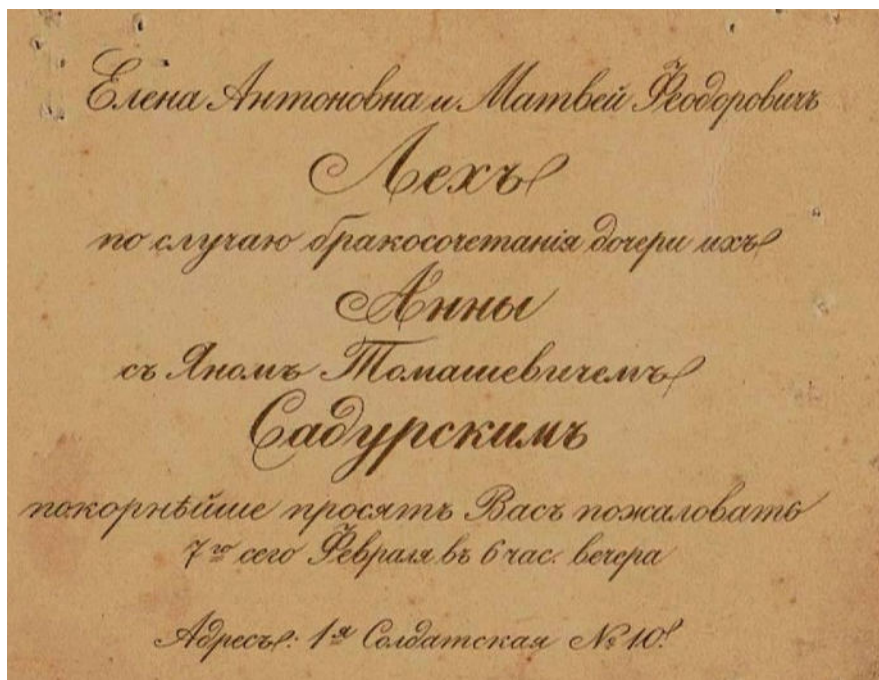 Елена Антоновна и Матвей Ѳеодоровичъ
Лехъ
по случаю бракосочетанія дочери ихъ
Анны
съ Яномъ Томашевичемъ
Садурскимъ
покорнѣйше просятъ Васъ пожаловать
7го сего Февраля въ 6 час. вечера
Адресъ: 1я Солдатская № 10.